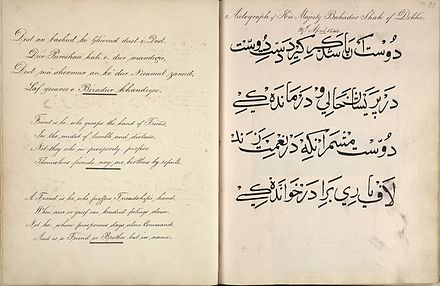 Dost an bashud ke Geerud dust e Dost
Dur Pareshan hali, o dur mandigee,
Dost mu shoomur an ke dur Niamut zanud,
Laf yaree o Biradur khandigee.
Friend is he, who grasps the hand of Friend,
In the midst of trouble and distress,
Not they who in prosperity, profess
Themselves friends, nay are brothers by repute.
A Friend is he, who profers Friendship's hand,
When care or grief our kindred feelings claim,
Not he, whom prosperous days alone Command,
And is a Friend or Brother but in name.
Autograph of His Majesty Bahadur Shah of Dehlie.
دوست آن باشد که گیرد دست دوست
در پریشان حالی و در ماندگی
دوست مشمر آنکه در نعمت زند
لاف یاری برادر خواندگی